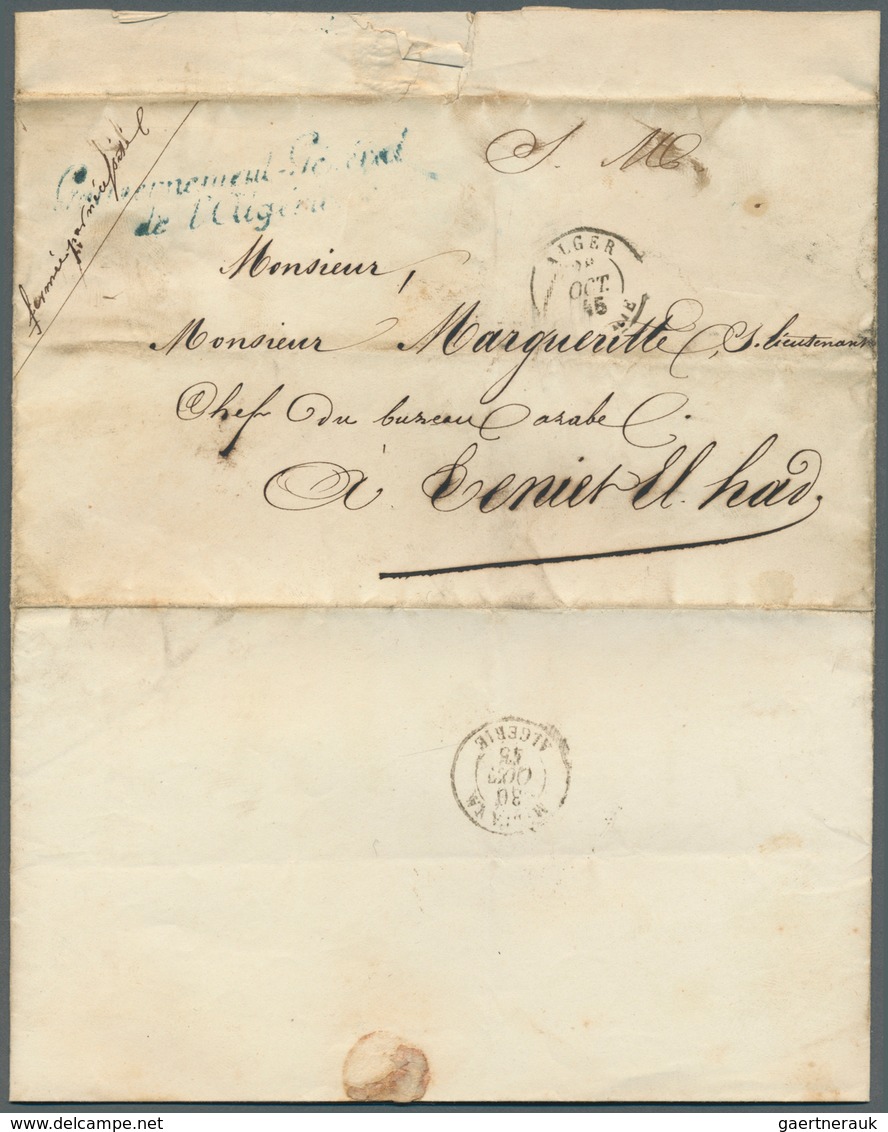 fermée par nécessité
S. M.
Gouvernement Général
de l'Algérie
ALGER
OCT.
45
Monsieur,
Monsieur Margueritte, S. lieutenant
Chef du bureau arabe
à Teniet El. had.
ALGERIE
45
OCT
30
MILIANA
gaertnerauk